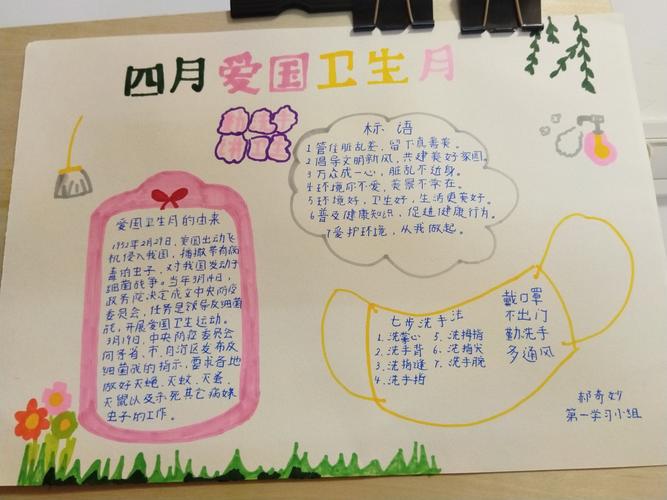 四月爱国卫生月
勤洗手
讲卫生
标语
1 管住脏乱差，留下真善美。
2 倡导文明新风，共建美好家园。
3 万众成一心，脏乱不近身。
4 环境你不爱，美景不常在。
5 环境好，卫生好，生活更美好。
6 普及健康知识，促进健康行为。
7 爱护环境，从我做起。
爱国卫生月的由来
1952年2月29日，美国出动飞
机侵入我国，播撒带有病
毒的虫子，对我国发动了
细菌战争。当年3月14日，
政务院决定成立中央防疫
委员会，任务是领导反细菌
战，开展爱国卫生运动。
3月19日，中央防疫委员会
向各省、市、自治区发布反
细菌战的指示，要求各地
做好灭蝇、灭蚊、灭蚤、
灭鼠以及杀死其它病媒
虫子的工作。
七步洗手法
1.洗掌心 5.洗拇指
2.洗手背 6.洗指尖
3.洗指缝 7.洗手腕
4.洗手指
戴口罩
不出门
勤洗手
多通风
郝奇妙
第一学习小组